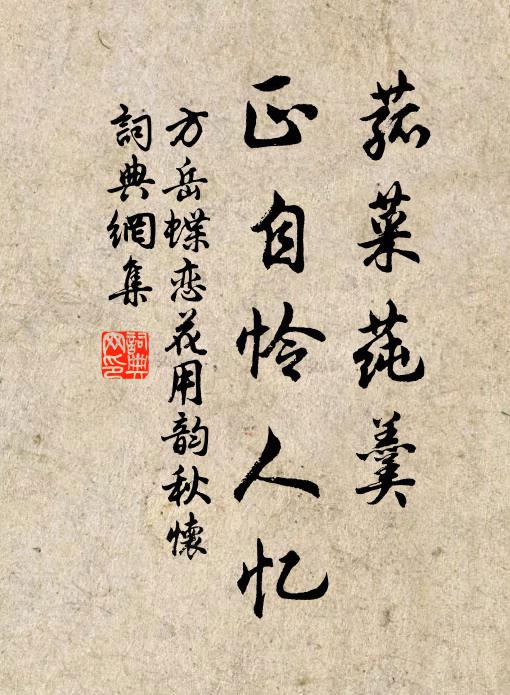 菰菜莼羹
正自怜人忆
方岳蝶恋花用韵秋懷
詞典網集
詞典網印